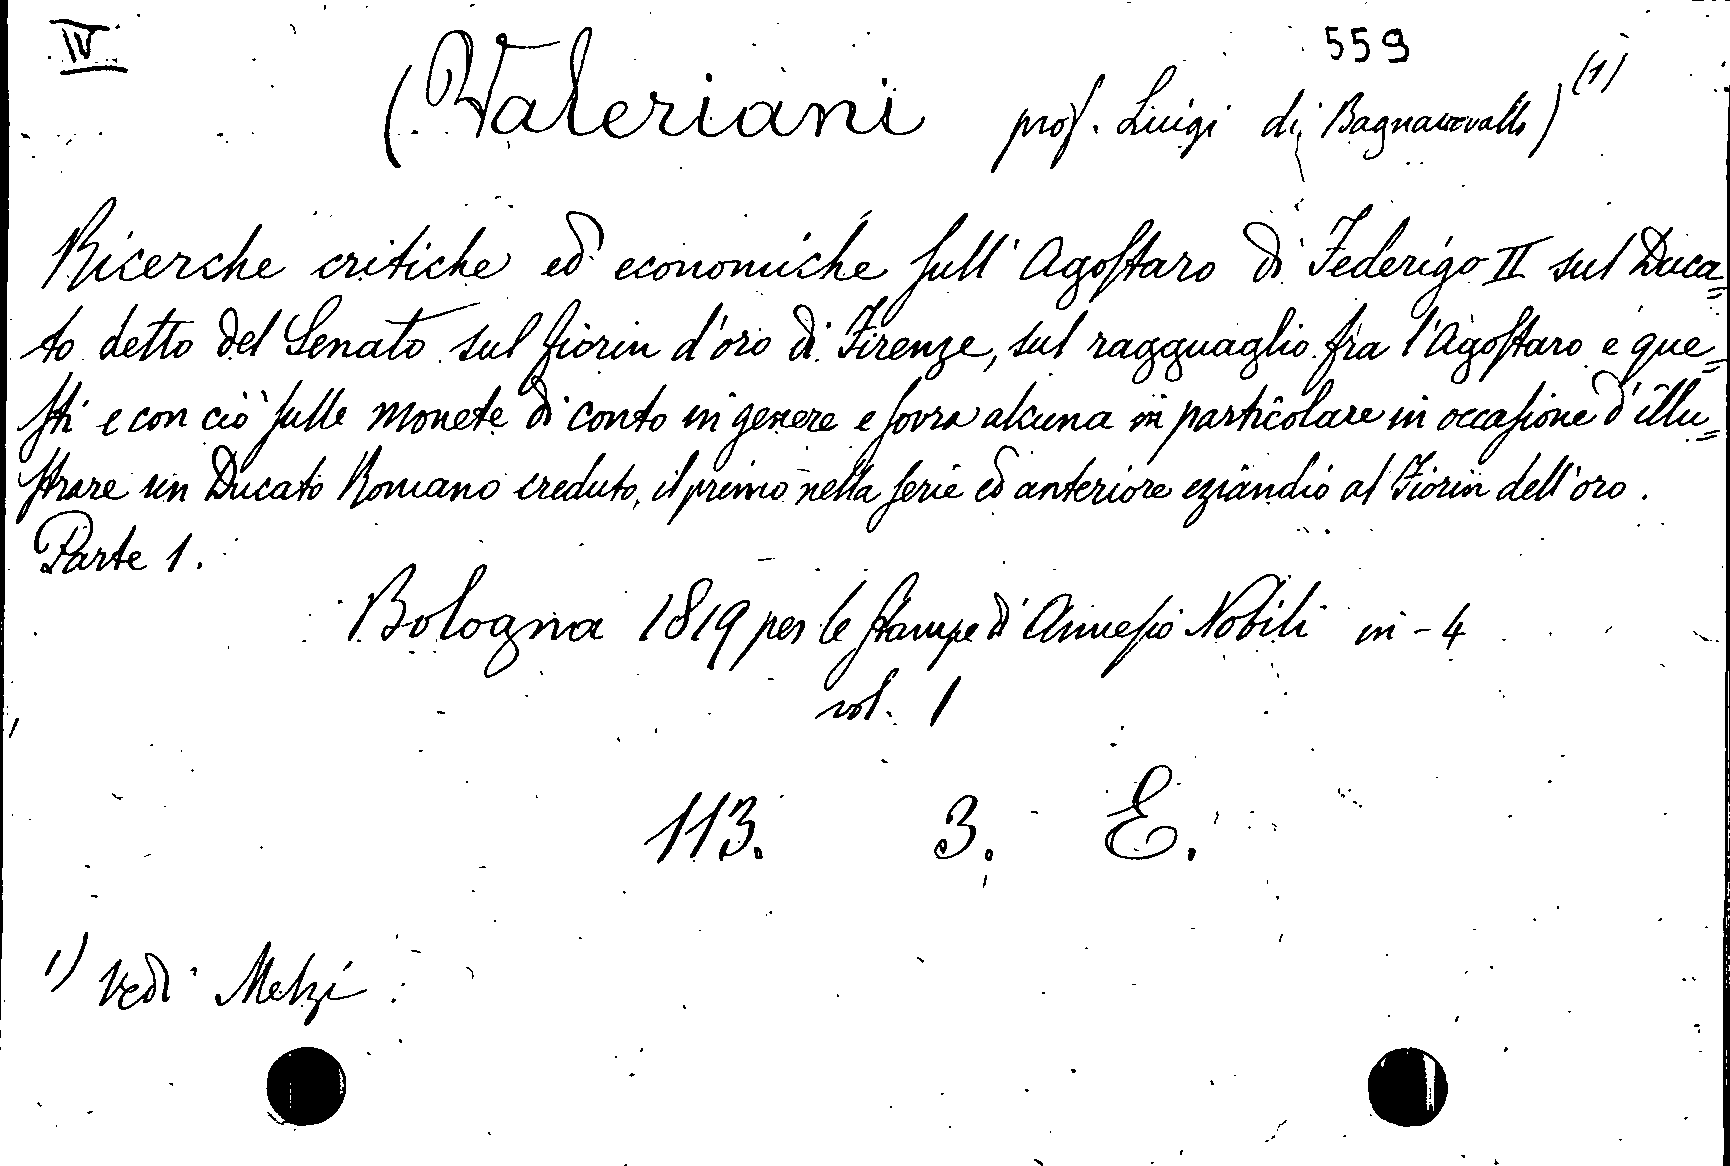 IV 559
(Valeriani prof. Luigi di Bagnacavallo) (1)
Ricerche critiche ed economiche sull'Agostaro di Federigo II sul Duca=
to detto del Senato sul fiorin d'oro di Firenze, sul ragguaglio fra l'Agostaro e que=
sti e con ciò sulle monete di conto in genere e sovra alcuna in particolare in occasione d'illu=
strare un Ducato Romano creduto, il primo nella serie ed anteriore eziandio al Fiorin dell'oro.
Parte 1.
Bologna 1819 per le stampe di Annesio Nobili in-4
vol. 1
113. 3. E.
1) Vedi Melzi